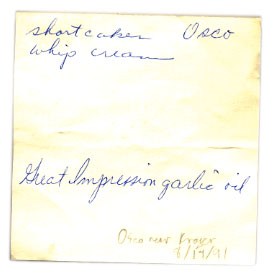 shortcakes Osco
whip cream
Great Impression garlic oil
Osco near Kroger
8/14/91